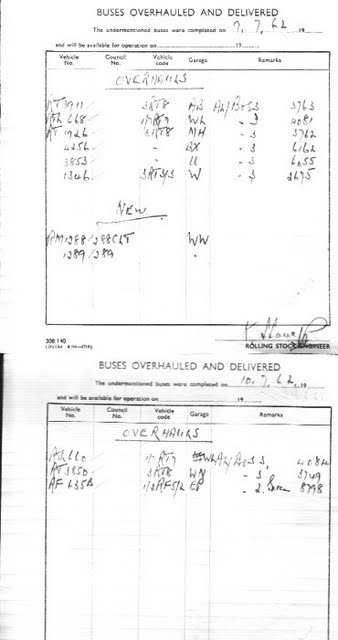 BUSES OVERHAULED AND DELIVERED
The undermentioned buses were completed on 7.7.62 19
and will be available for operation on 19
Vehicle No. Council No. Vehicle code Garage Remarks
OVERHAULS
RT 3911 3RT8 AB A2/Bo 3 3763
RTL 668 1/7RT7 WL - 3 4081
RT 1926 3RT8 MH - 3 3762
4256 - BX - 3 6162
3853 - U - 3 6055
1346 3RT3/3 W - 3 2675
NEW
RM1288/288CLT WW
1289/289 -
308 140
ROLLING STOCK ENGINEER
BUSES OVERHAULED AND DELIVERED
The undermentioned buses were completed on 10.7.62. 19
and will be available for operation on 19
Vehicle No. Council No. Vehicle code Garage Remarks
OVERHAULS
RTL 660 RT7 A2/Bo 3 3. 4082
RT 3850 3RT8 WN - 3 3749
RF 635B 1/2RF5/2 EP - 2. 8798